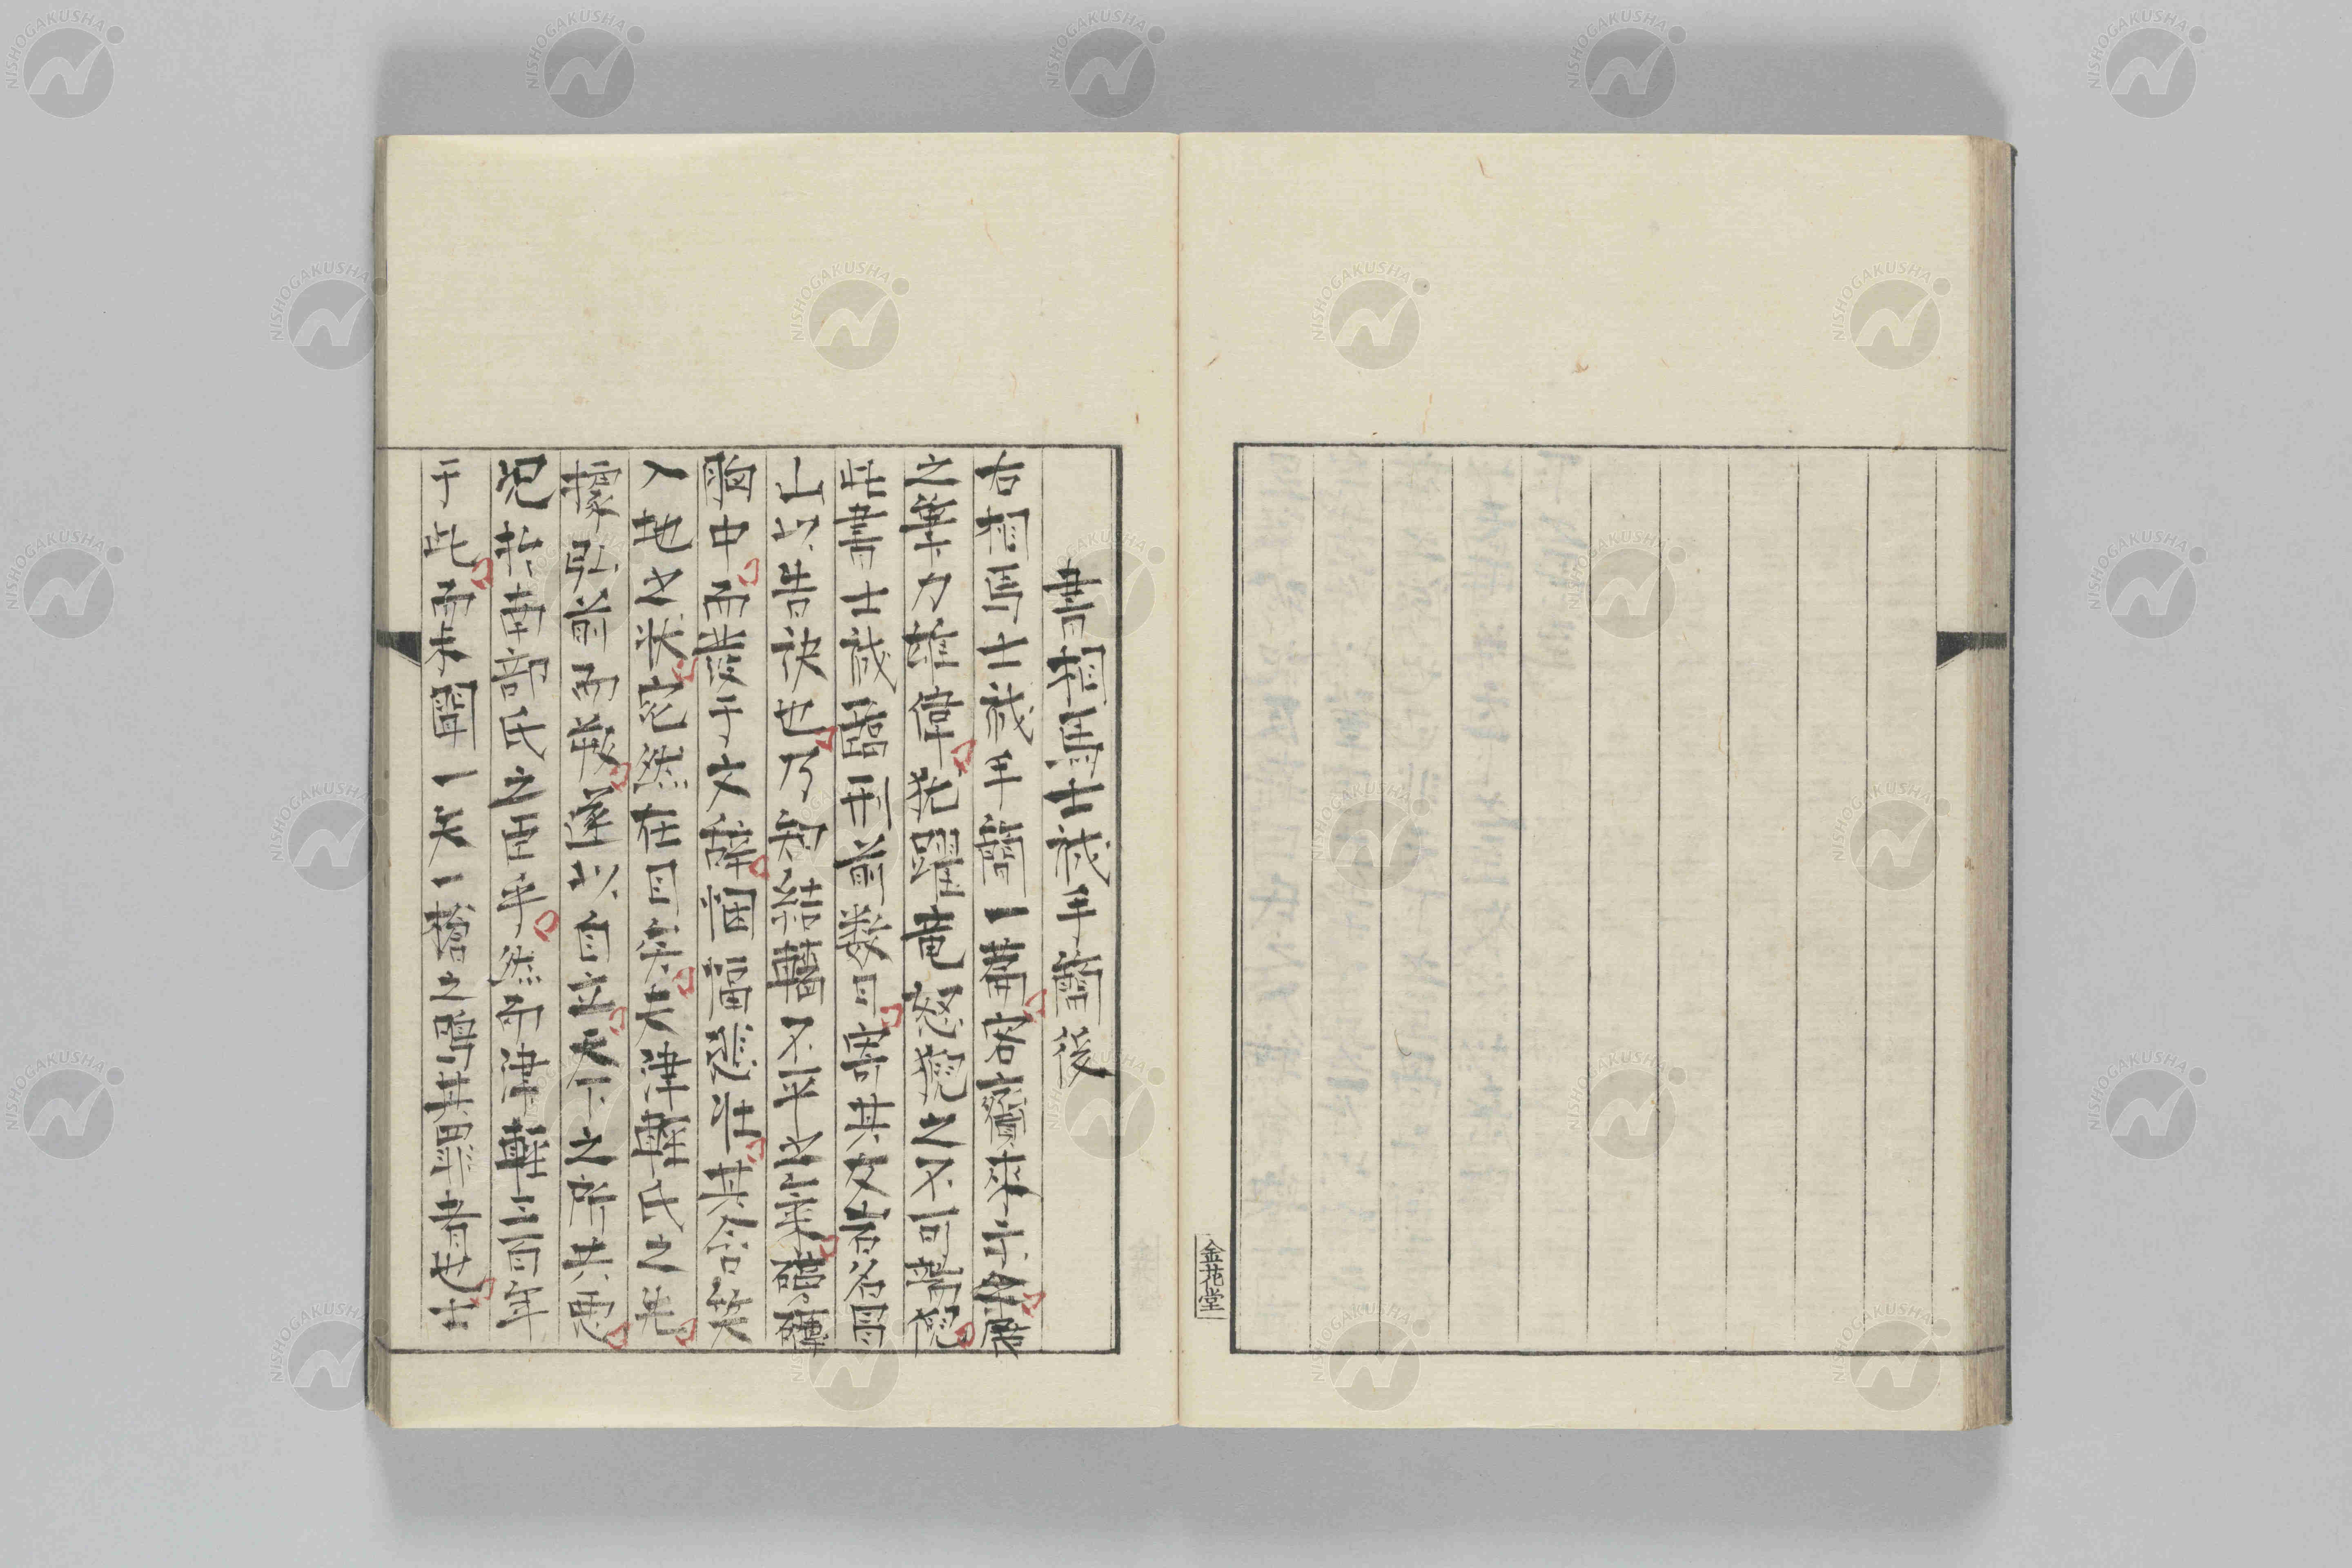 書相馬士誠手簡後
右相馬士誠手簡一篇客齎來示余展
之筆力雄偉犯躍竜怒猊之不可羈猊
此書士誠臨刑前数日寄其友岩名昌
山以告訣也乃知結轖不平之氣磅礴
胸中而發于文辞悃愊悲壮其含笑
入地之状宛然在目矣夫津軽氏之先
據弘前而叛遂以自立天下之所共悪
況於南部氏之臣乎然而津軽三百年
于此而未聞一矢一槍之鳴其罪者也士
金花堂
NISHOGAKUSHA